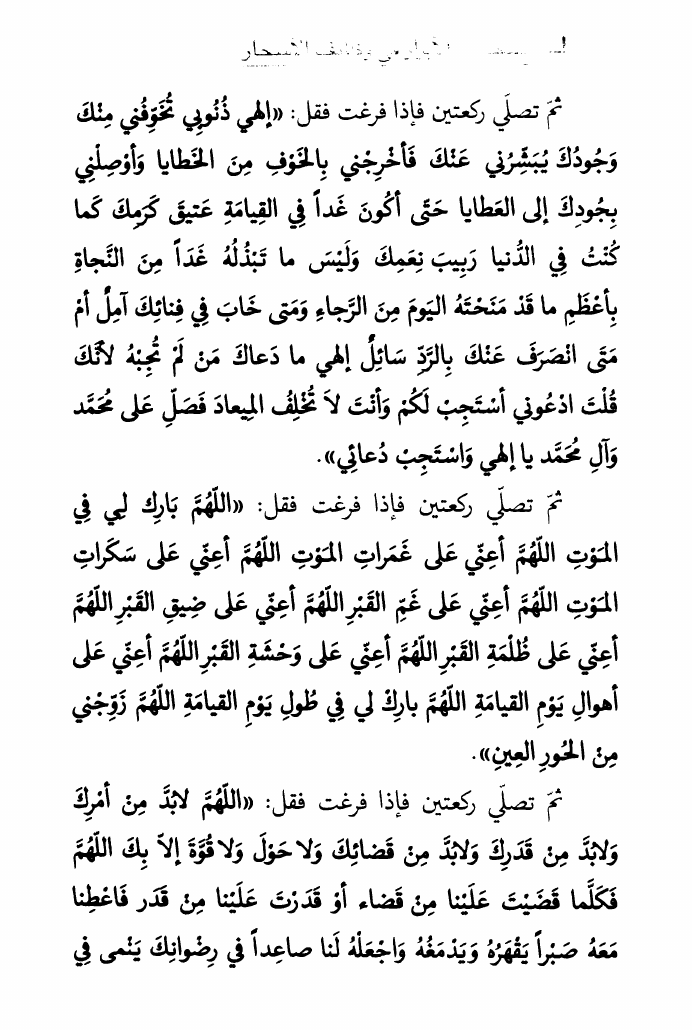 الأبرار في وظائف الأسحار
ثمَ تصلَي ركعتين فإذا فرغت فقل: «إلهي ذُنُوبِي تُخَوِّفُني مِنْكَ
وَجُودُكَ يُبَشِّرُنِي عَنْكَ فَأَخْرِجْنِي بِالخَوْفِ مِنَ الخَطايا وَأَوْصِلْنِي
بِجُودِكَ إلى العَطايا حَتّى أكُونَ غَداً فِي القِيامَةِ عَتيقَ كَرَمِكَ كَما
كُنْتُ فِي الدُّنيا رَبِيبَ نِعَمِكَ وَلَيْسَ ما تَبْذُلُهُ غَدَاً مِنَ النَّجاةِ
بِأعْظَمِ ما قَدْ مَنَحْتَهُ اليَومَ مِنَ الرَّجاءِ وَمَتى خَابَ فِي فِنائِكَ آمِلٌ أمْ
مَتَى انْصَرَفَ عَنْكَ بِالرَّدِّ سَائِلٌ إلهي ما دَعاكَ مَنْ لَمْ تُجِبْهُ لأنَّكَ
قُلْتَ ادْعُوني أسْتَجِبْ لَكُمْ وَأنْتَ لاَ تُخْلِفُ المِيعادَ فَصَلِّ عَلى مُحَمَّد
وَآلِ مُحَمَّد يا إلهي وَاسْتَجِبْ دُعائِي».
ثمَ تصلّي ركعتين فإذا فرغت فقل: «اللّهُمَّ بَارِك لِي فِي
المَوْتِ اللّهُمَّ أعِنّي عَلى غَمَراتِ المَوْتِ اللّهُمَّ أعِنّي عَلى سَكَراتِ
المَوْتِ اللّهُمَّ أعِنّي عَلى غَمِّ القَبْرِ اللّهُمَّ أعِنّي عَلى ضِيقِ القَبْرِ اللّهُمَّ
أعِنّي عَلى ظُلْمَةِ القَبْرِ اللّهُمَّ أعِنّي عَلى وَحْشَةِ القَبْرِ اللّهُمَّ أعِنّي عَلى
أهوالِ يَوْمِ القيامَةِ اللّهُمَّ بارِكْ لي فِي طُولِ يَوْمِ القيامَةِ اللّهُمَّ زَوِّجْني
مِنْ الحُورِ العِينِ».
ثمَ تصلّي ركعتين فإذا فرغت فقل: «اللّهُمَّ لابُدَّ مِنْ أمْرِكَ
وَلابُدَّ مِنْ قَدَرِكَ وَلابُدَّ مِنْ قَضائِكَ وَلا حَوْلَ وَلا قُوَّةَ إلاّ بِكَ اللّهُمَّ
فَكَلَّما قَضَيْتَ عَلَيْنا مِنْ قَضاء أوْ قَدَرْتَ عَلَيْنا مِنْ قَدَر فَاعْطِنا
مَعَهُ صَبْراً يَقْهَرُهُ وَيَدْمَغُهُ وَاجْعَلْهُ لَنا صاعِداً في رِضْوانِكَ يَنْمى فِي